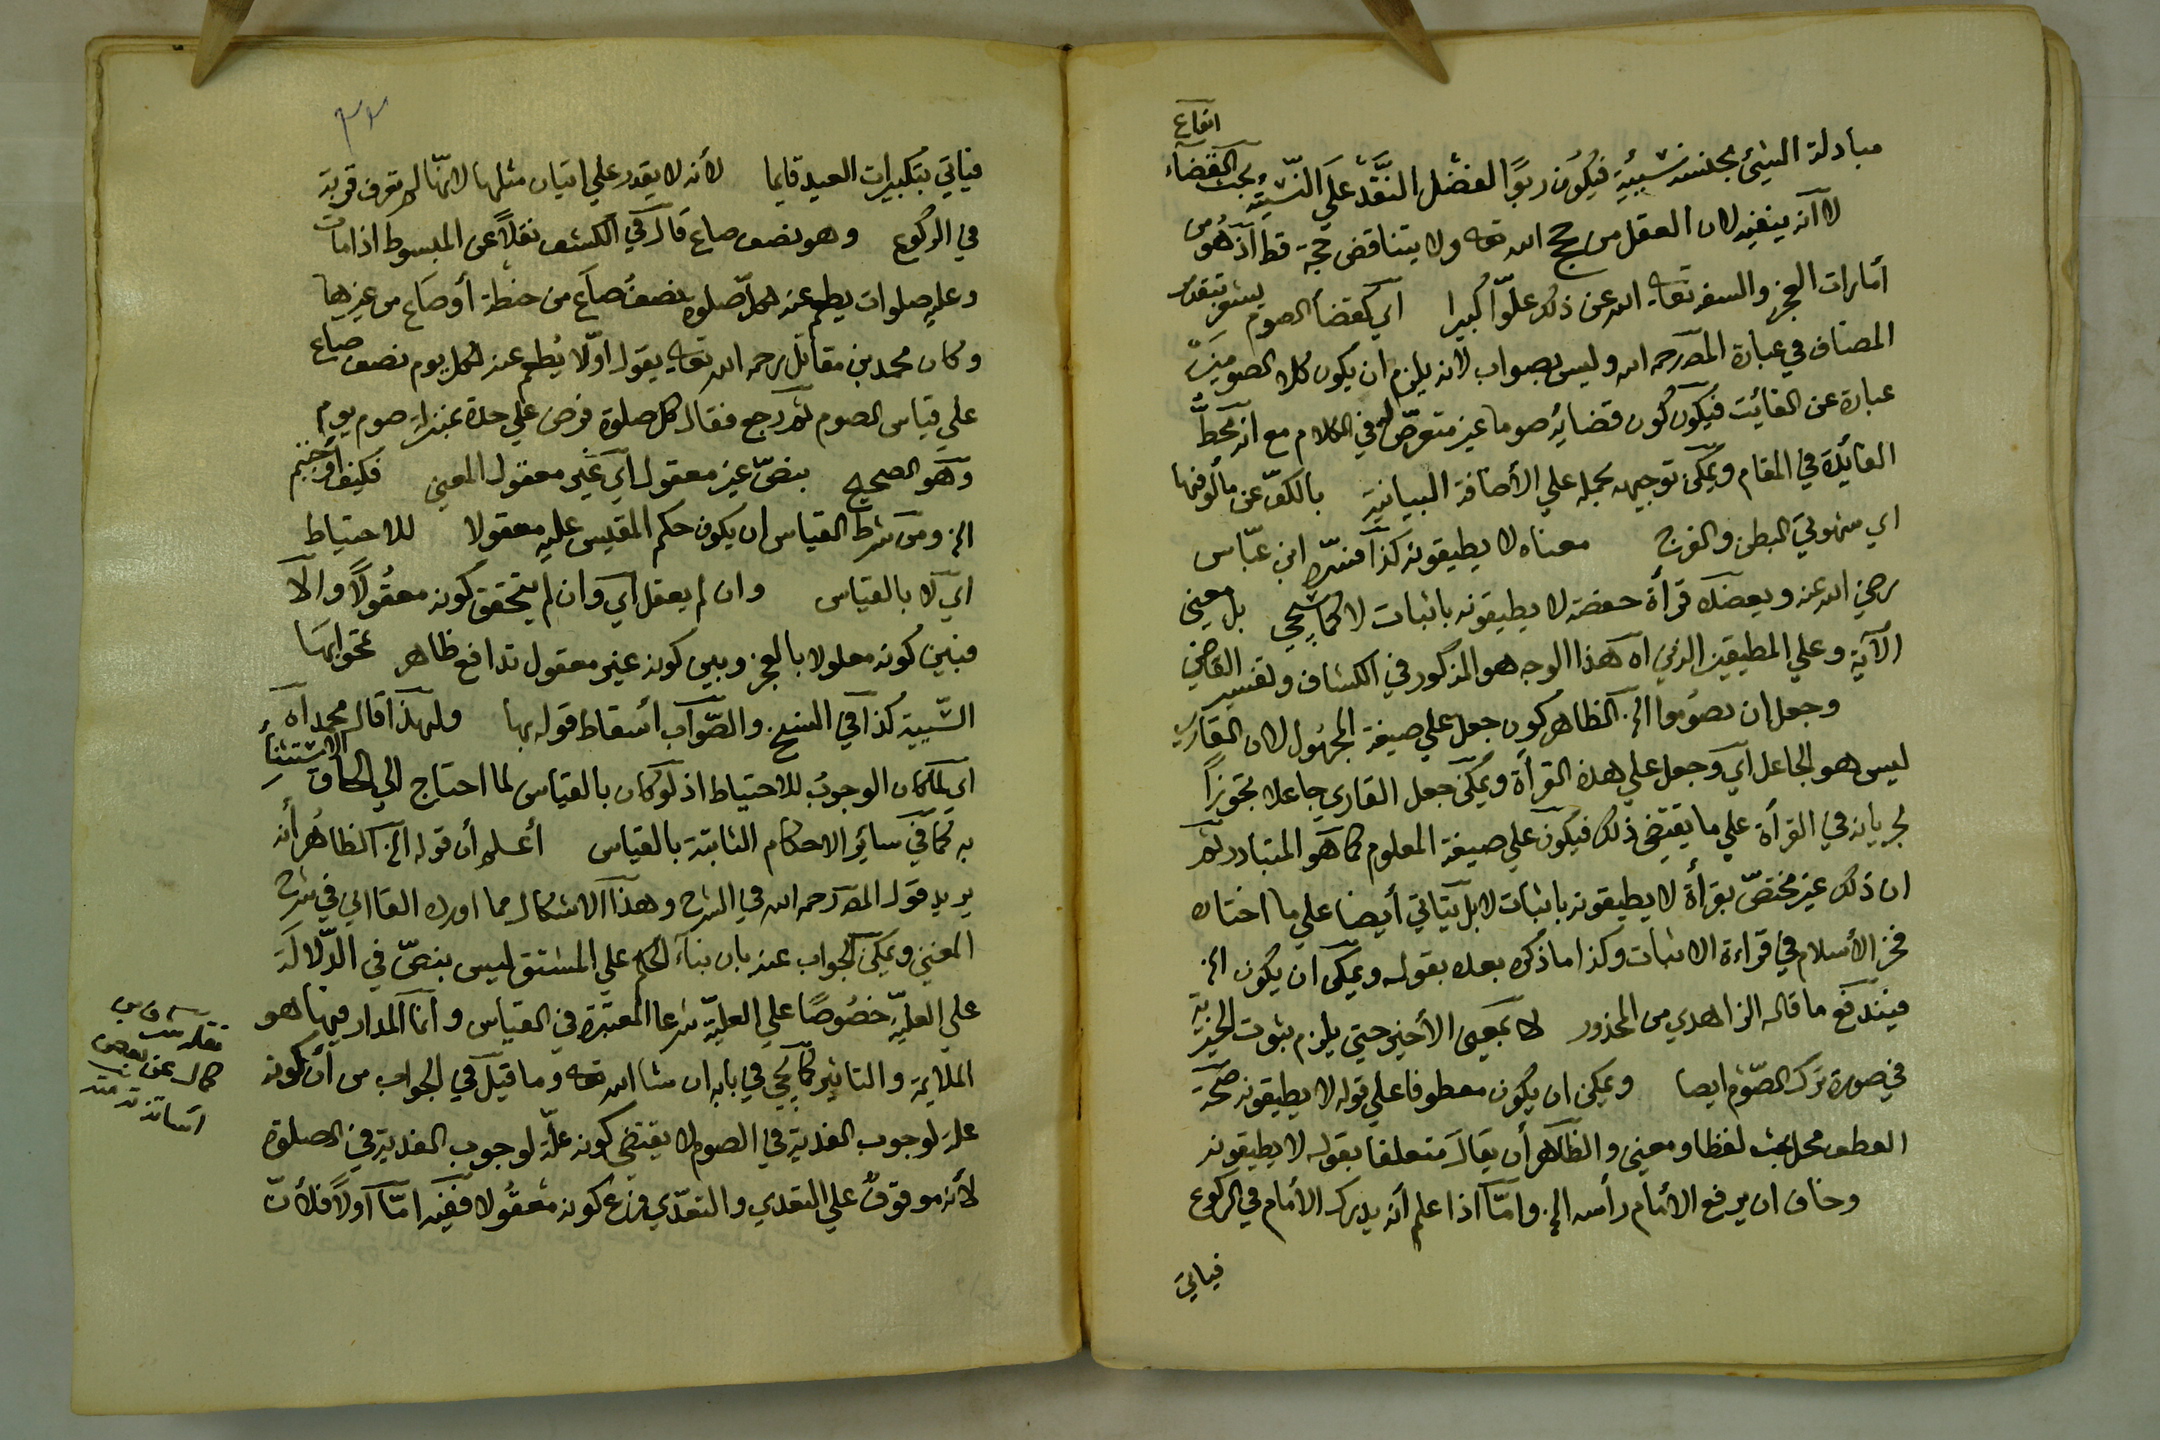 انواع
مبادلة الشئ بجنسه نسيئة فيكون ربوا لفضل النقد على النسيئة بحث القضاء
لا أنه ينفيه لان العقل من حجج الله تعه ولا يتناقض حججه قط اذ هو من
أمارات العجز والسفه تعالى الله عن ذلك علوّا كبيرا اي كقضأ الصوم يشعر بتقدير
المضاف في عبارة المصـ رحمه الله وليس بصواب لأنه يلزم ان يكون كلا الصومين
عبارة عن الفائت فيكون كون قضائه صوما غير متعرّض له في الكلام مع انه محطّ
الفائدة في المقام ويمكن توجيهه بحمله علي الأضافة البيانية بالكفّ عن مألوفها
اي شهوتي البطن والفرج معناه لا يطيقونه كذا فسّره ابن عبّاس
رضي الله عنه ويعضده قرأة حفصة لا يطيقونه باثبات لا كما سيجئ بل معنى
الآية وعلي المطيقين الذين اه هذا الوجه هو المذكور في الكشاف وتفسير القاضي
وجعل ان تصوموا الخ الظاهر كون جعل علي صيغة المجهول لان القاري
ليس هو الجاعل اي وجعل علي هذه القرأة ويمكن جعل القاري جاعلا تجوزاً
لجريانه في القرأة علي ما يقتضي ذلك فيكون علي صيغة المعلوم كما هو المتبادر ثم
ان ذلك غير مختصّ بقرأة لا يطيقونه باثبات لا بل يتأتي أيضا علي ما اختاره
فخر الأسلام في قراءة الاثبات وكذا ما ذكره بعده بقوله ويمكن ان يكون الخ
فيندفع ما قاله الزاهدي من المحذور لا بمعنى الأخير حتي يلزم ثبوت الخيرية
في صورة ترك الصّوم ايضا ويمكن ان يكون معطوفا علي قوله لا يطيقونه صحّة
العطف محل بحث لفظا ومعنى والظاهر أن يقال متعلقا بقوله لا يطيقونه
وخاف ان يرفع الأمام رأسه الخ وامّا اذا علم أنه يدرك الأمام في الركوع
فياتي
٣٢
فياتي بتكبيرات العيد قايما لأنه لا يقدر علي اتيان مثلها لانّها لم تعرف قربة
في الركوع وهو نصف صاع قال في الكشف نقلاً عن المبسوط اذا مات
وعليه صلوات يطعم عنه لكلّ صلوة نصفُ صاع من حنطة أو صاع من غيرها
وكان محمد بن مقاتل رحمه الله تعه يقول اوّلا يُطعم عنه لكل يوم نصف صاع
علي قياس الصوم ثم رجع فقال كل صلوة فرض علي حدة بمنزلة صوم يوم
وهو الصحيح بنصّ غير معقول اي غير معقول المعني فكيف أوجبتم
الخ ومن شرط القياس ان يكون حكم المقيس عليه معقولا للاحتياط
اي لا بالقياس وان لم يعقل اي وان لم يتحقق كونه معقُولاً والا
فبين كونه معلولا بالعجز وبين كونه غير معقول تدافع ظاهر نحو ابهما
الشّبية كذا في النسخ والصّواب أسقاط قوله بها ولهذا قال محمد اه
اي لمّا كان الوجوبُ للاحتياط اذ لو كان بالقياس لما احتاج الي الحاق الاستثنأ
به كما في سائر الاحكام الثابتة بالقياس أعلم أن قوله الخ الظاهُر أنه
يريد قول المصـ رحمه الله في الشرح وهذا الاشكال مما اورده القاآني في شرح
المغني ويمكن الجواب عنه بان بناء الحكم علي المشتق ليس بنصّ في الدّلالة
علي العليّة خصُوصًا علي العليّة شرعا المعتبرة في القياس وانما المدار فيها هو
الملايمة والتاثير كما يجئ في بابه ان شا الله تعه وما قيل في الجواب من أن كونه
علة لوجوب الفدية في الصوم لا يقتضي كونه علّة لوجوب الفدية في الصلوة
لأنه موقوفٌ علي التعدي والتعدّي فرع كونه معقُولا ففيه امّا أولاً فلأنّ
كمال عن بعض
اساتذته منه